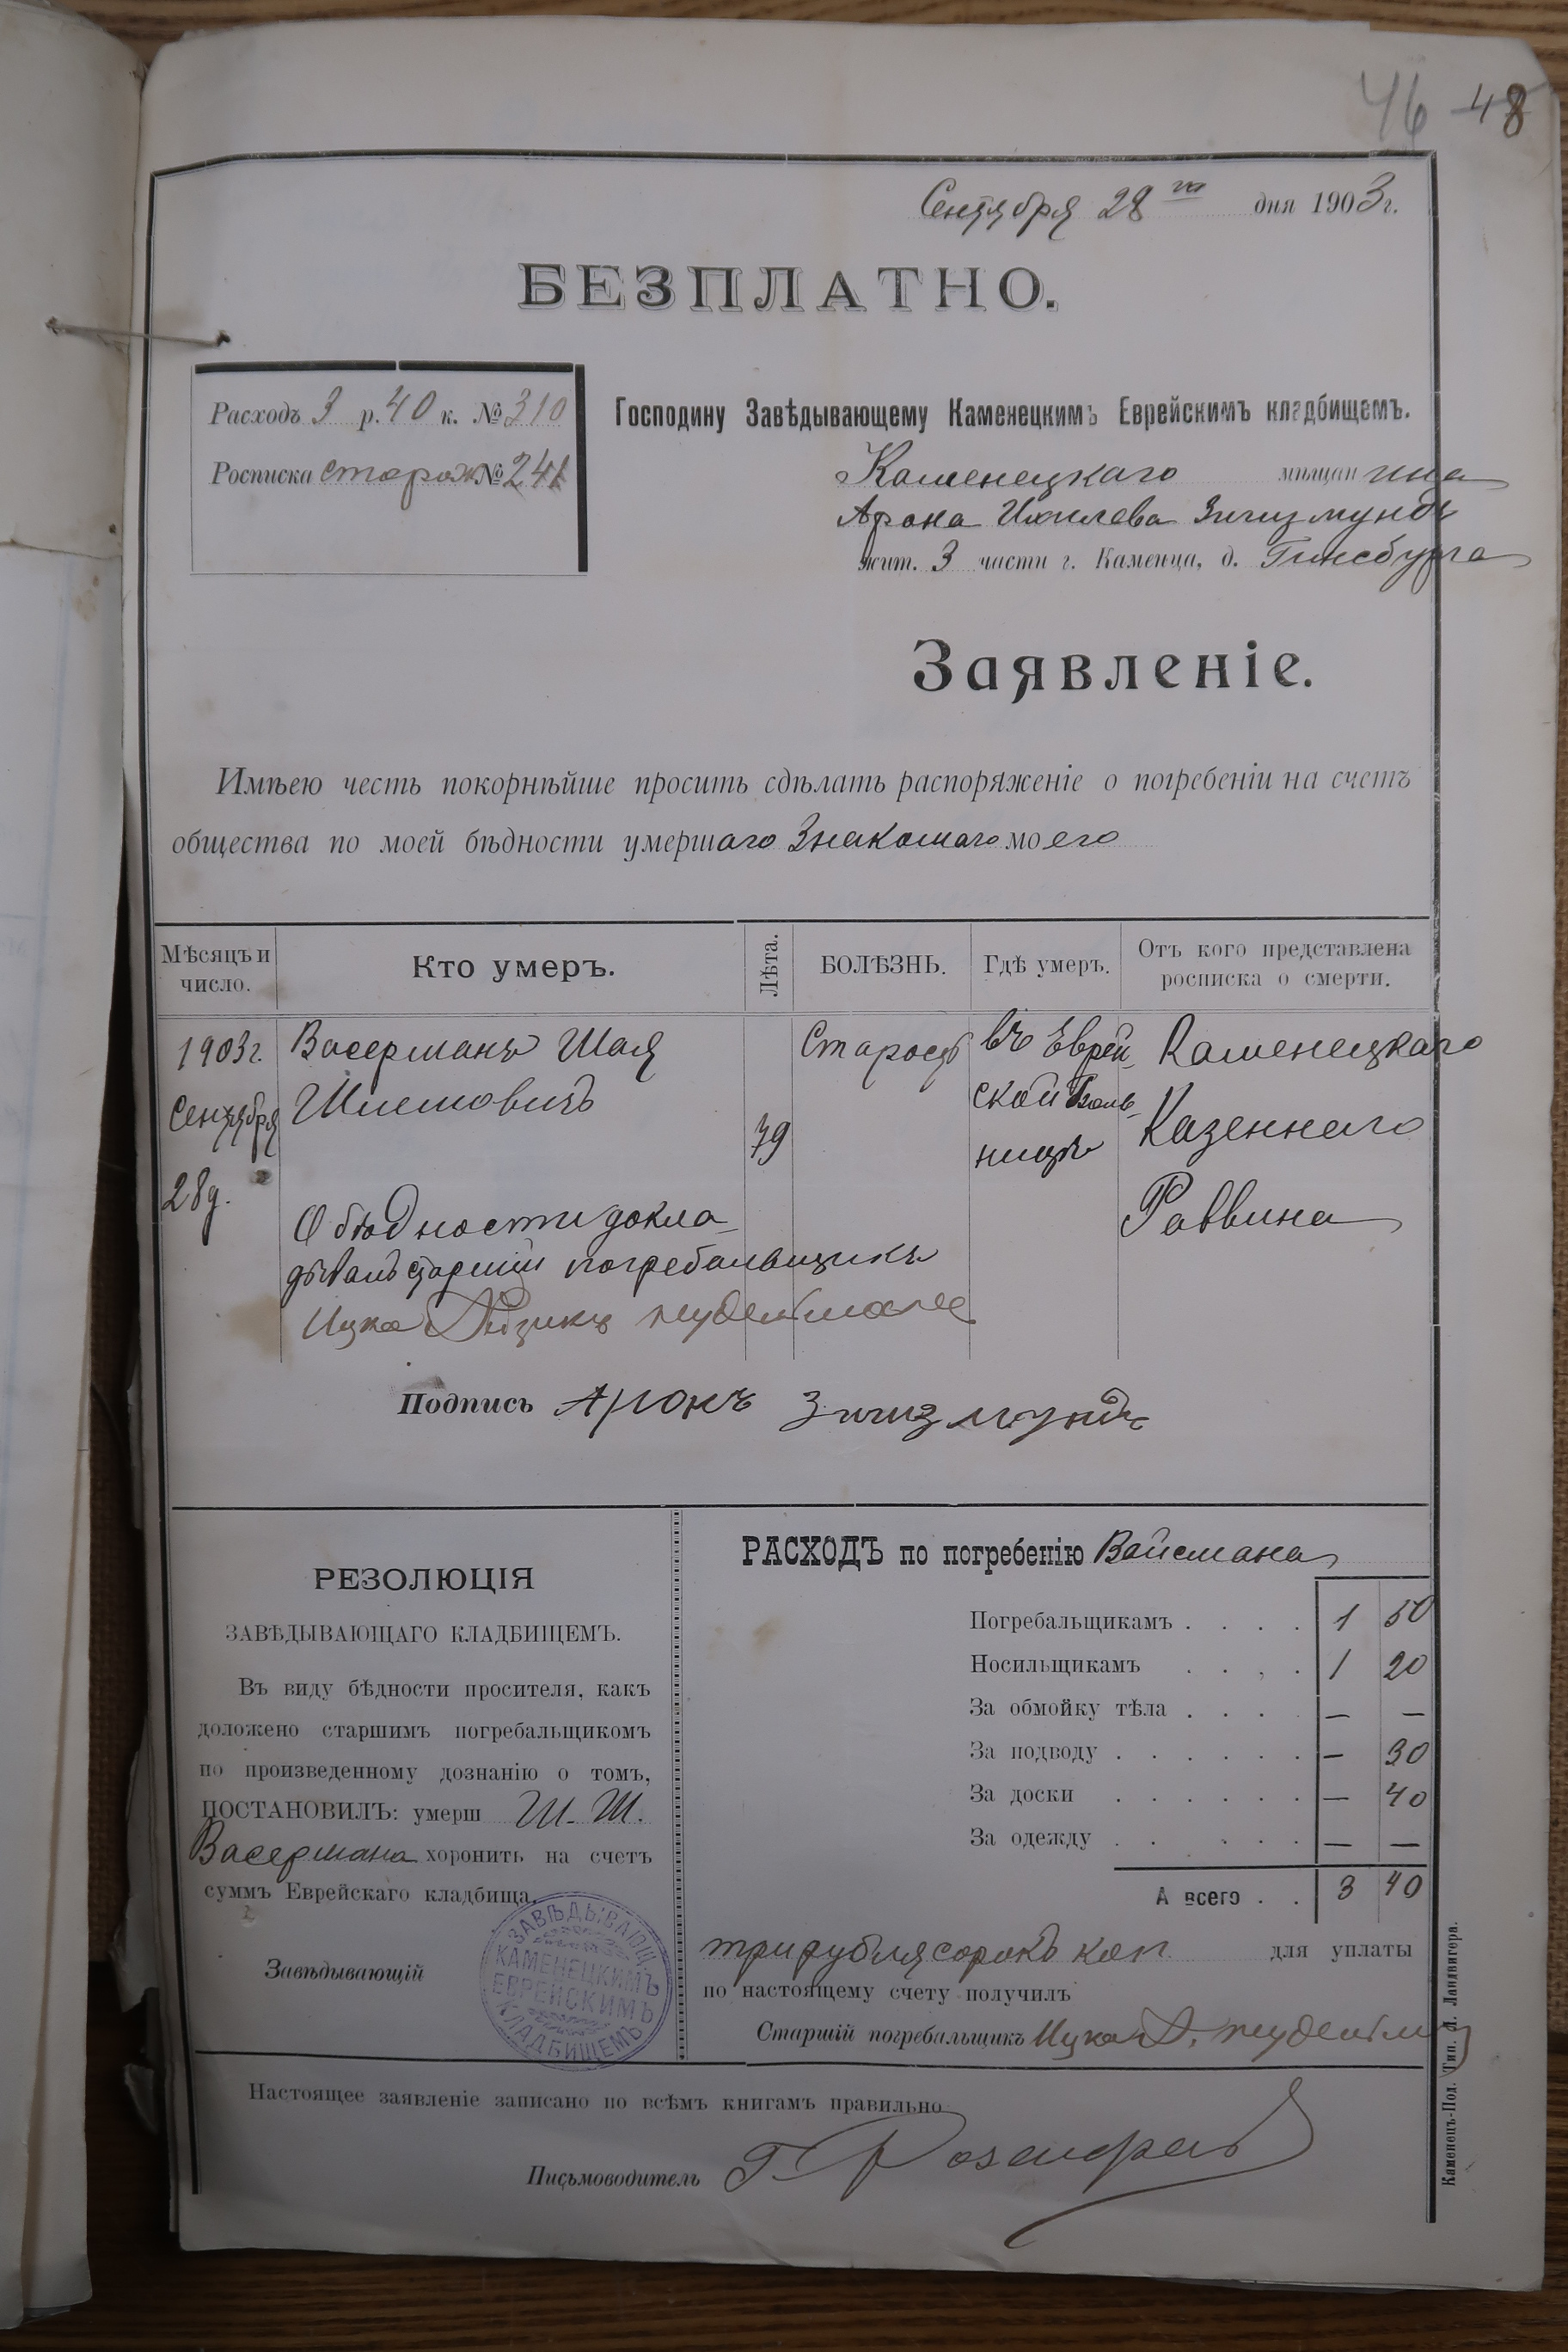 46 48
Сентября 28го дня 1903 г.
БЕЗПЛАТНО.
Расходъ 3 р. 40 к. № 310
Росписка сторож № 241
Господину Завѣдывающему Каменецкимъ Еврейскимъ кладбищемъ.
Каменецкаго мѣщанина
Арона Ихилева Зигизмундъ
жит. 3 части г. Каменца, д. Гинсбурга
Заявленіе.
Имѣю честь покорнѣйше просить сдѣлать распоряженіе о погребеніи на счетъ
общества по моей бѣдности умершаго Знакомаго моего
Мѣсяцъ и число.
Кто умеръ.
Лѣта.
БОЛѢЗНЬ.
Гдѣ умеръ.
Отъ кого представлена росписка о смерти.
1903 г.
Сентября
28 д.
Васерманъ Шая
Шлемовичъ
79
Старость
въ Еврей-
ской Боль-
ницѣ
Каменецкаго
Казеннаго
Раввина
О бѣдности докла-
дывалъ старшій погребальщикъ
Ицка
Подпись Аронъ Зигизмундъ
РЕЗОЛЮЦІЯ
ЗАВѢДЫВАЮЩАГО КЛАДБИЩЕМЪ.
Въ виду бѣдности просителя, какъ
доложено старшимъ погребальщикомъ
по произведенному дознанію о томъ,
ПОСТАНОВИЛЪ: умерш Ш. Ш.
Васермана хоронить на счетъ
суммъ Еврейскаго кладбища.
Завѣдывающій
ЗАВѢДЫВАЮЩ.
КАМЕНЕЦКИМЪ
ЕВРЕЙСКИМЪ
КЛАДБИЩЕМЪ
РАСХОДЪ по погребенію Вайсмана
Погребальщикамъ . . . . 1 50
Носильщикамъ . . , . 1 20
За обмойку тѣла . . . . — —
За подводу . . . . . . — 30
За доски . . . . . . — 40
За одежду . . . . . — —
А всего . . 3 40
три рубля сорокъ коп для уплаты
по настоящему счету получилъ
Старшій погребальщикъ Ицка
Настоящее заявленіе записано по всѣмъ книгамъ правильно
Письмоводитель Г. Розенфельд
Каменецъ-Под. Тип. Л. Ландвигера.